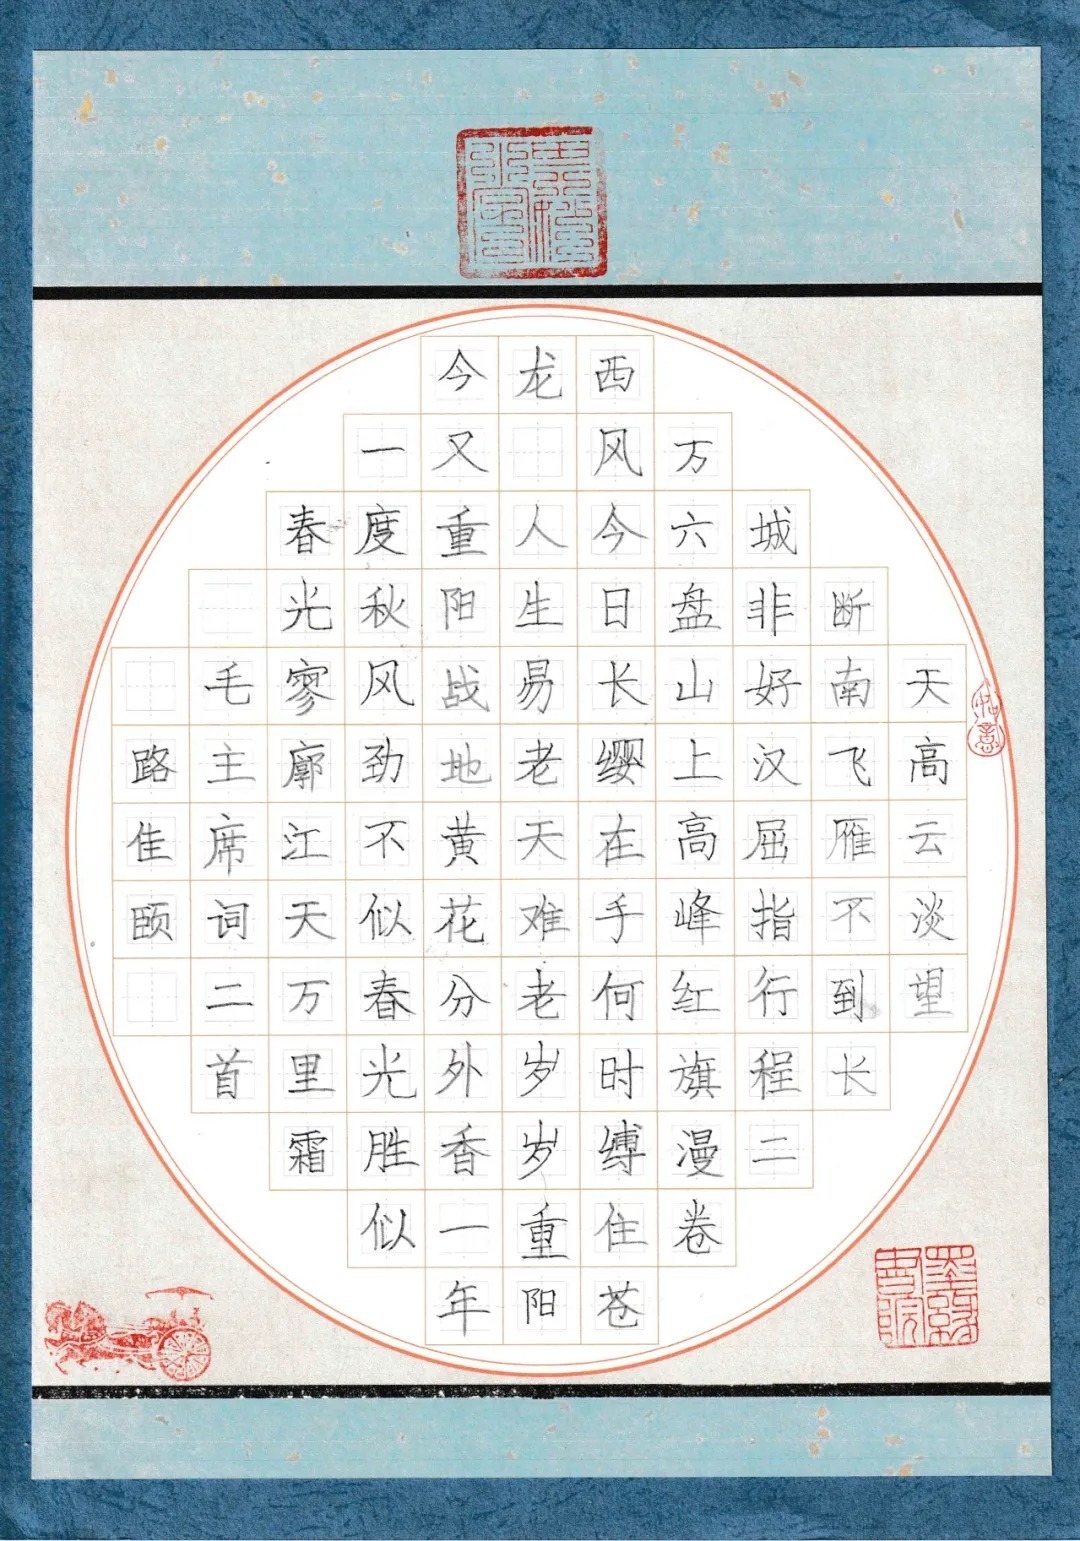 天高云淡望
断南飞雁不到长
城非好汉屈指行程二
万六盘山上高峰红旗漫卷
西风今日长缨在手何时缚住苍
龙 人生易老天难老岁岁重阳
今又重阳战地黄花分外香一年
一度秋风劲不似春光胜似
春光寥廓江天万里霜
毛主席词二首
路佳颐